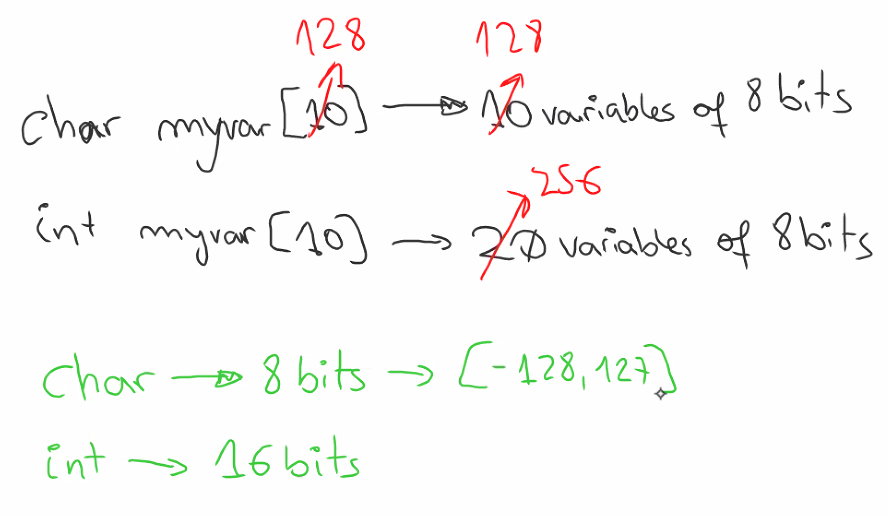 128 128
char myvar [10] → 10 variables of 8 bits
256
int myvar [10] → 20 variables of 8 bits
char → 8 bits → [-128, 127]
int → 16 bits